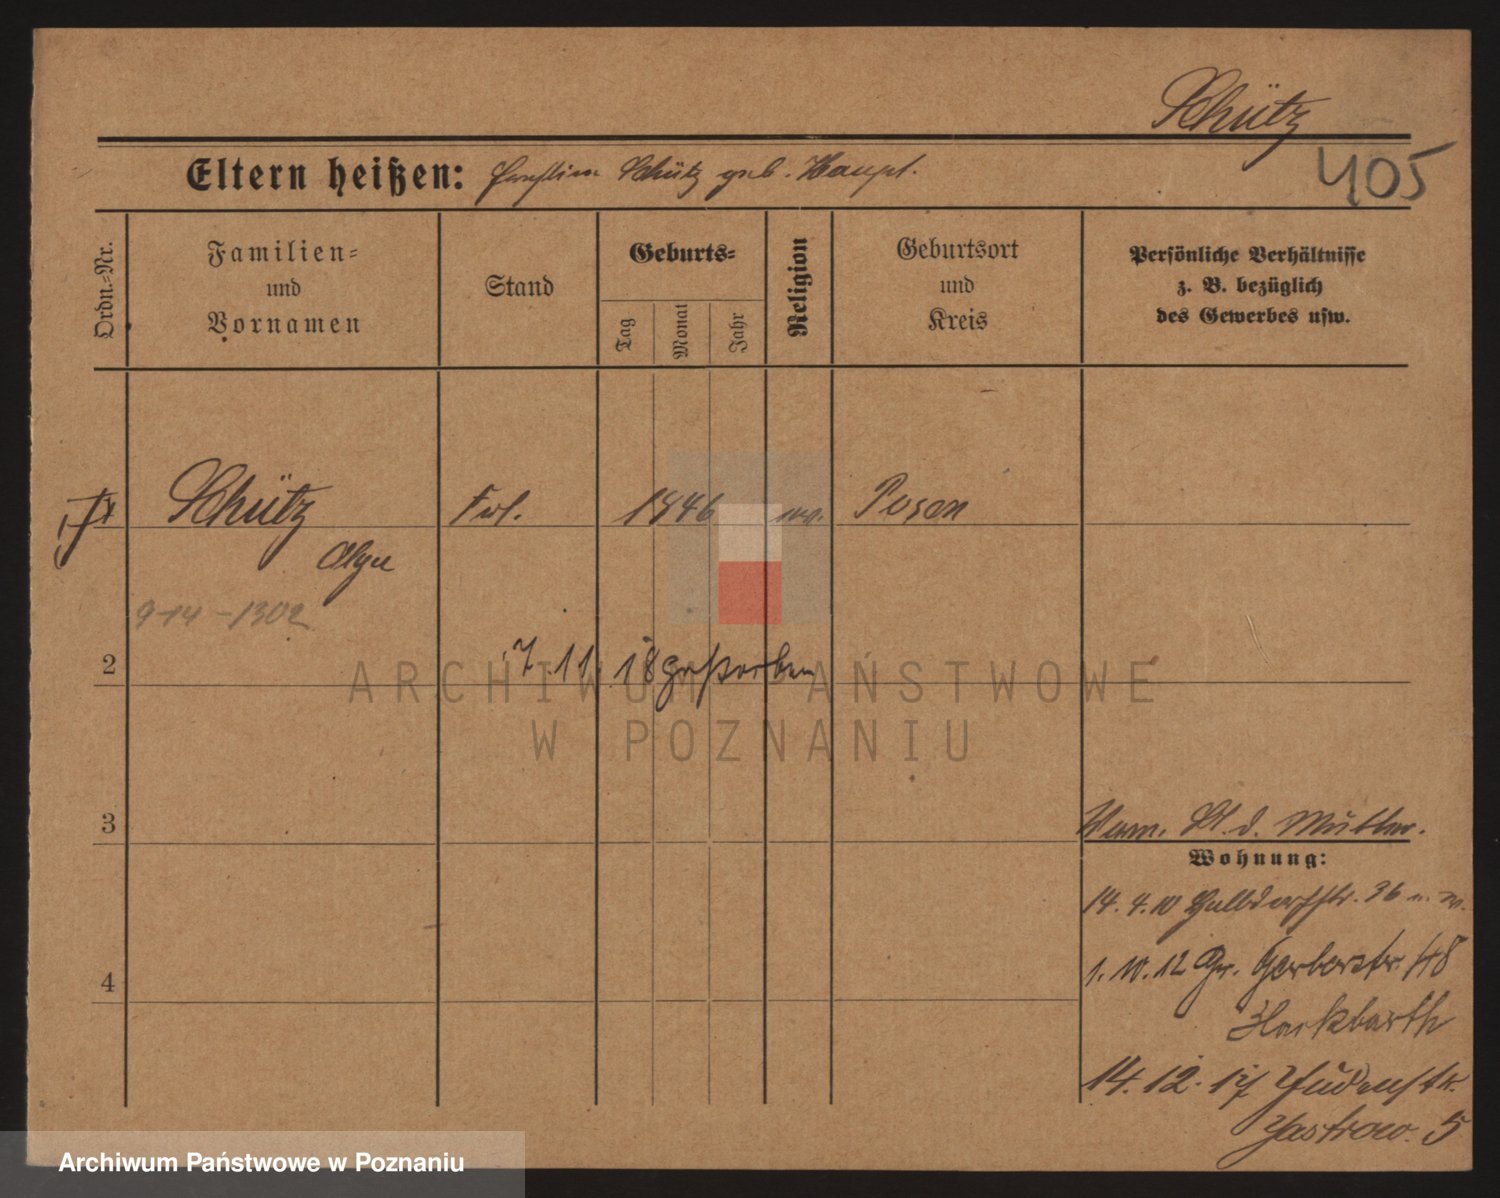 Schütz
405
Eltern heißen: Schütz geb. Haupt.
Ordn.-Nr.
Familien-
und
Vornamen
Stand
Geburts-
Tag
Monat
Jahr
Religion
Geburtsort
und
Kreis
Persönliche Verhältnisse
z. B. bezüglich
des Gewerbes usw.
1 Schütz Frl. 1846 ev. Posen
Olga
914-1302
2 7. 11 18 gestorben
3
Verm. St. d. Mutter.
Wohnung:
14. 4. 10 Halbdorfstr. 36
1. 10. 12 Gr. Gerberstr. 48
Hackbarth
4
14. 12. 17 Judenstr.
Jastrow. 5
ARCHIWUM PAŃSTWOWE
W POZNANIU
Archiwum Państwowe w Poznaniu